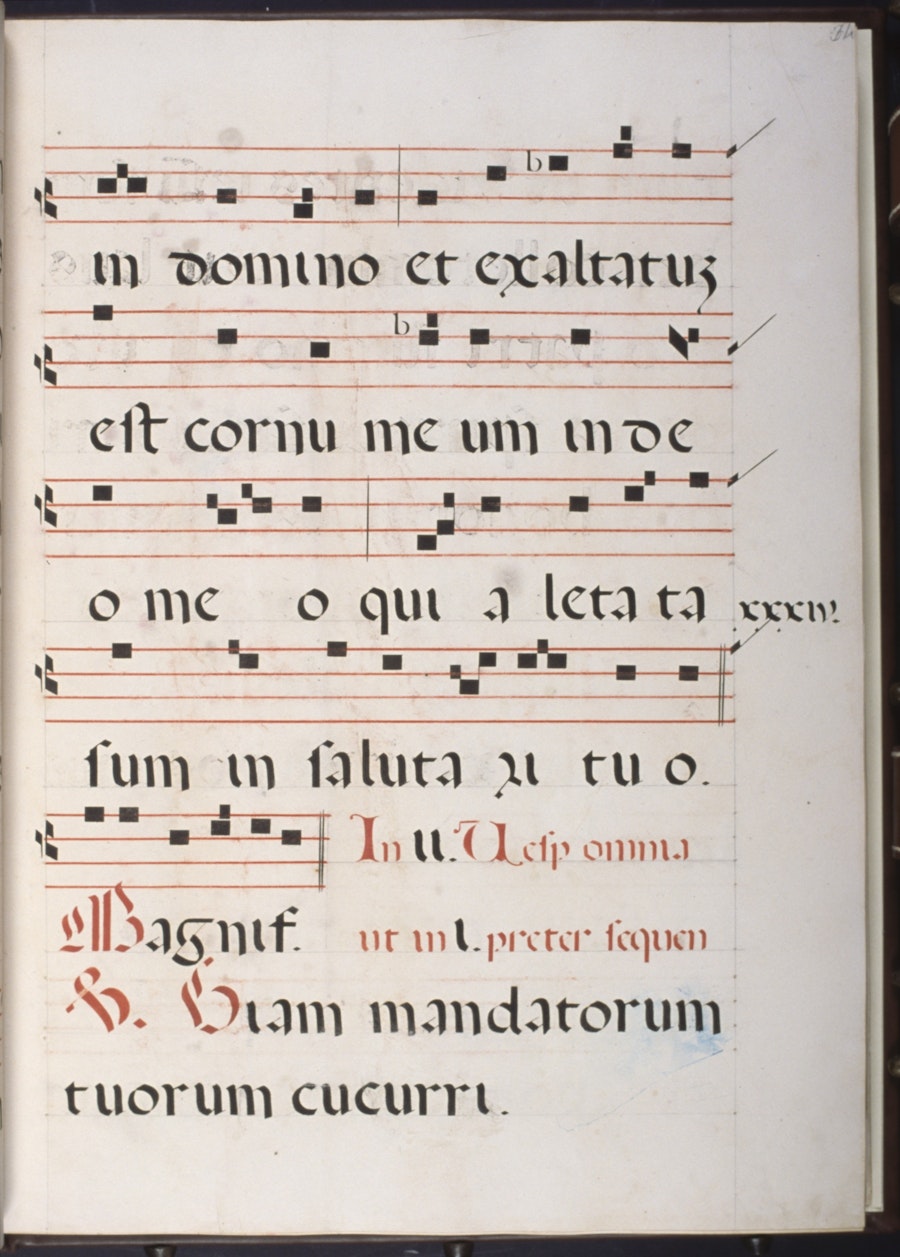 in domino et exaltatuʒ
est cornu me um in de
o me o qui a leta ta
xxxiv.
sum in saluta ri tu o.
In II. Uesp omnia
Magnif. ut in I. preter sequen
Uiam mandatorum
tuorum cucurri.